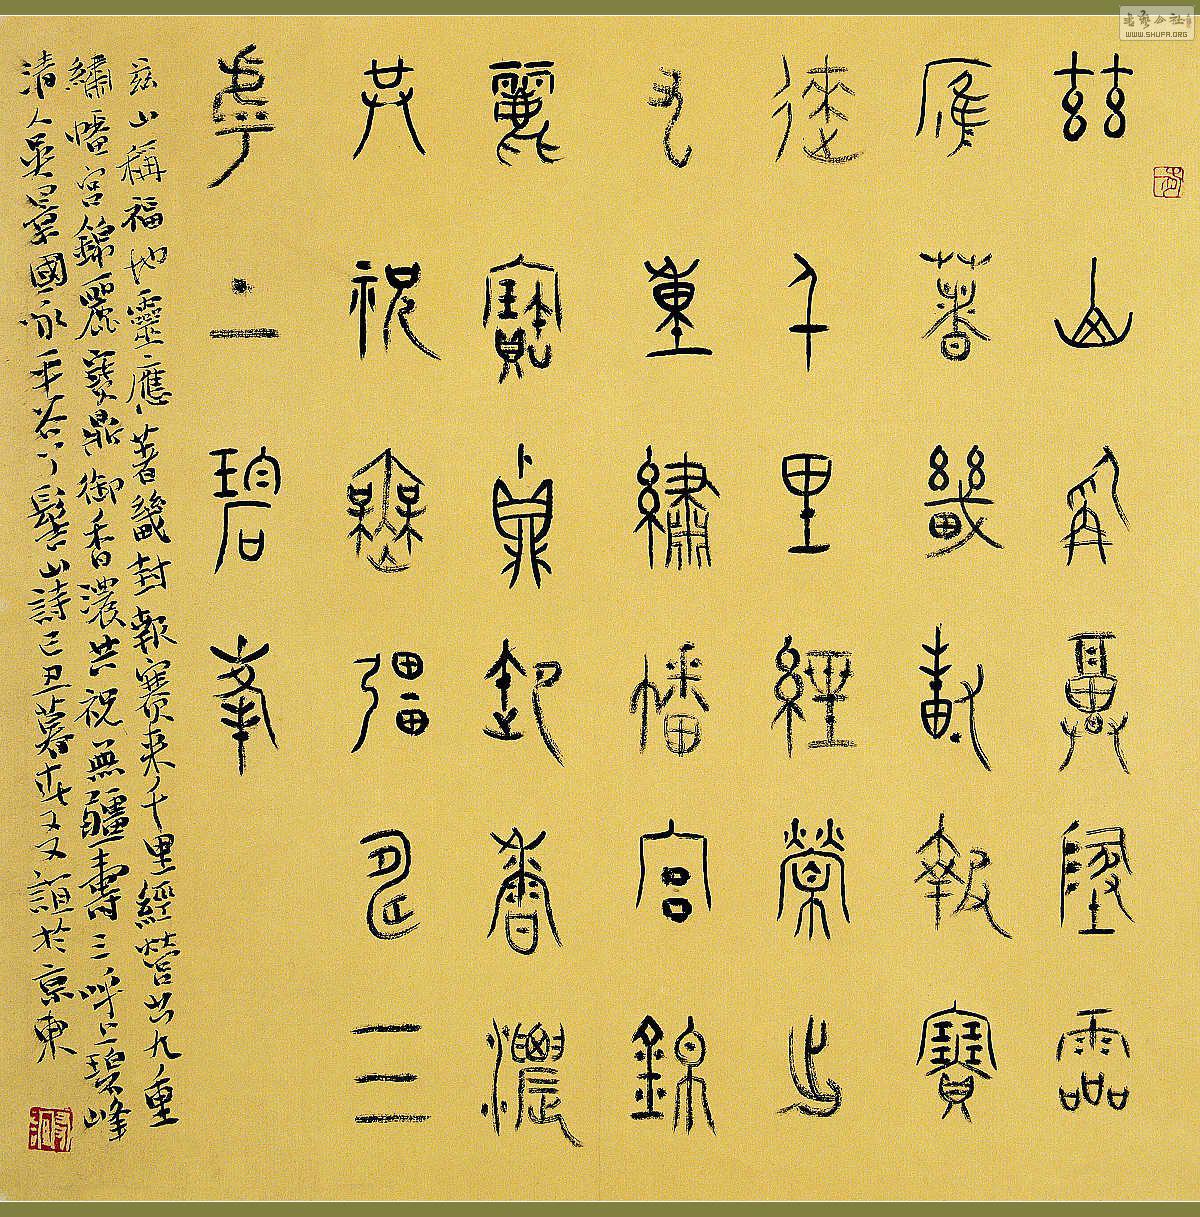 茲山稱福地靈
應著畿封報賽
來千里經營出
九重繡幡宮錦
麗寶鼎御香濃
共祝無疆壽三
呼上碧峰
茲山稱福地靈應著畿封報賽来千里經營出九重
繡幡宮錦麗寶鼎御香濃共祝無疆壽三呼上碧峰
清人吳景國詠平谷丫髻山詩己丑暮春又又誼於京東
書藝公社
WWW.SHUFA.ORG